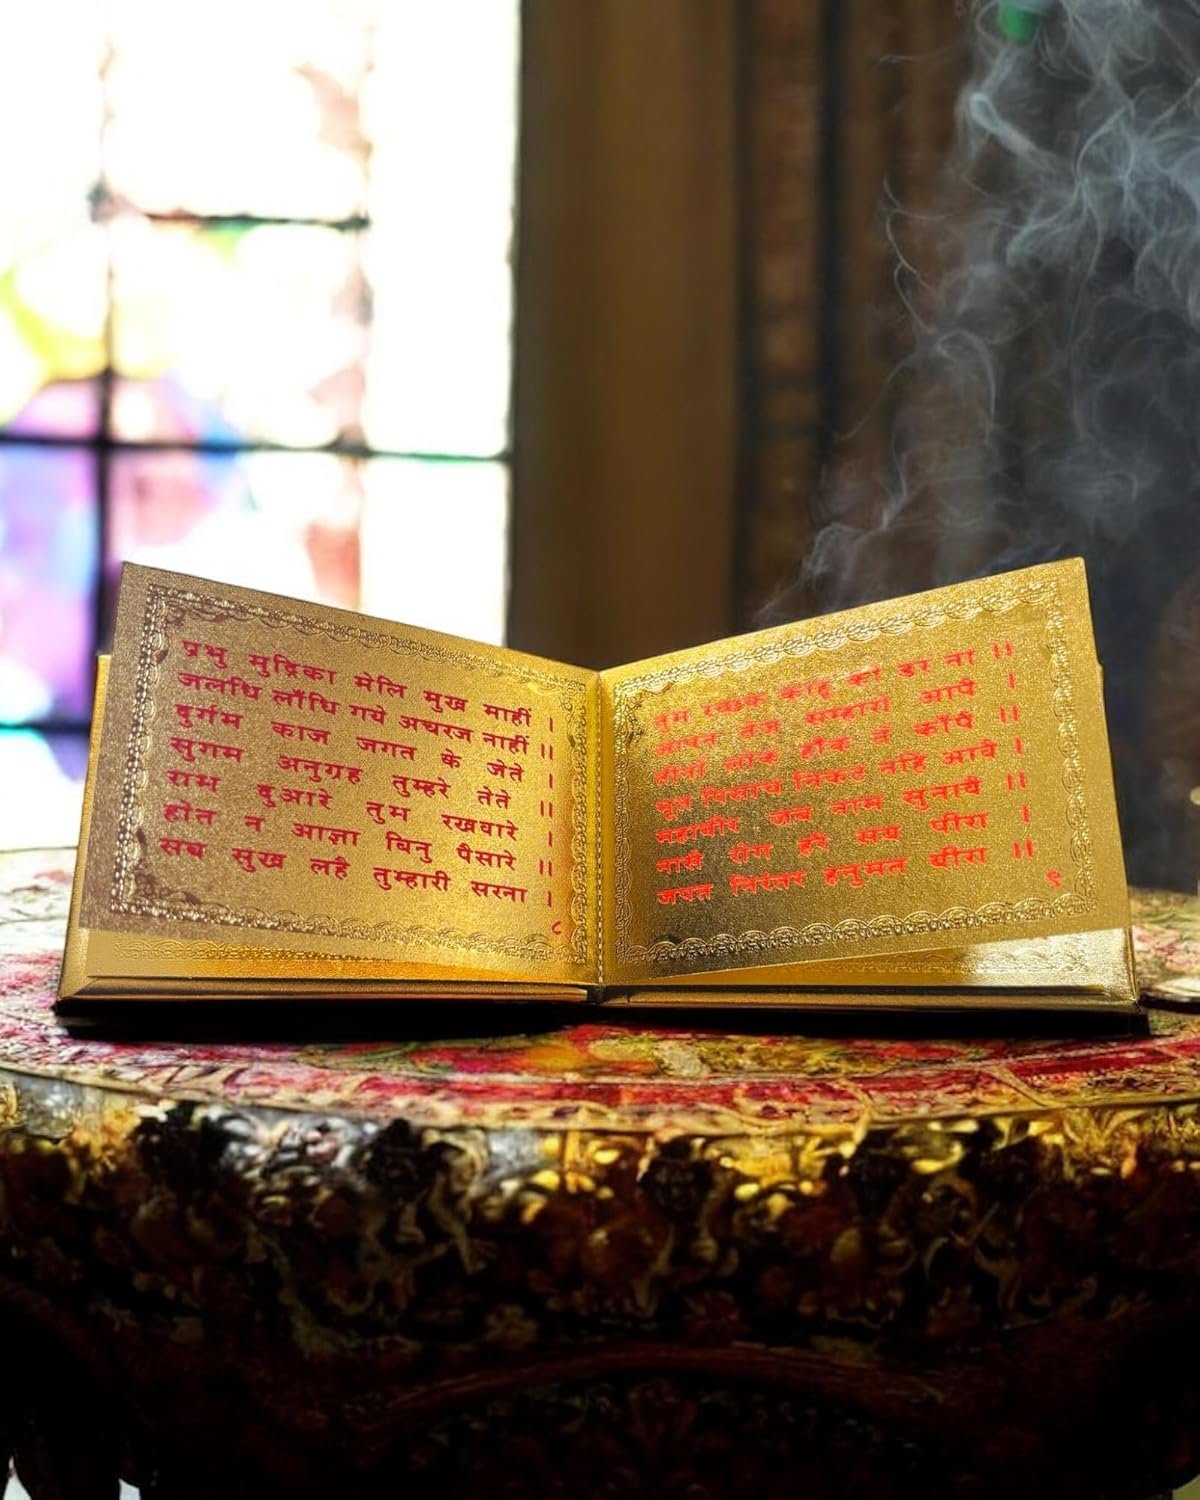 प्रभु मुद्रिका मेलि मुख माहीं ।
जलधि लाँघि गये अचरज नाहीं ।।
दुर्गम काज जगत के जेते ।
सुगम अनुग्रह तुम्हरे तेते ।।
राम दुआरे तुम रखवारे ।
होत न आज्ञा बिनु पैसारे ।।
सब सुख लहै तुम्हारी सरना ।
८
तुम रक्षक काहू को डर ना ।।
आपन तेज सम्हारो आपै ।
तीनों लोक हाँक ते काँपै ।।
भूत पिसाच निकट नहिं आवै ।
महाबीर जब नाम सुनावै ।।
नासै रोग हरै सब पीरा ।
जपत निरंतर हनुमत बीरा ।।
९